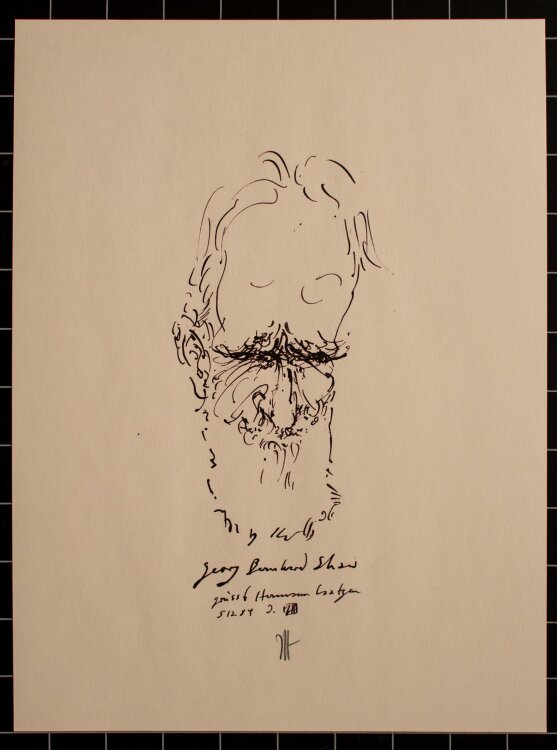 Georg Bernhard Shaw
grüsst Hermann
51284 J.